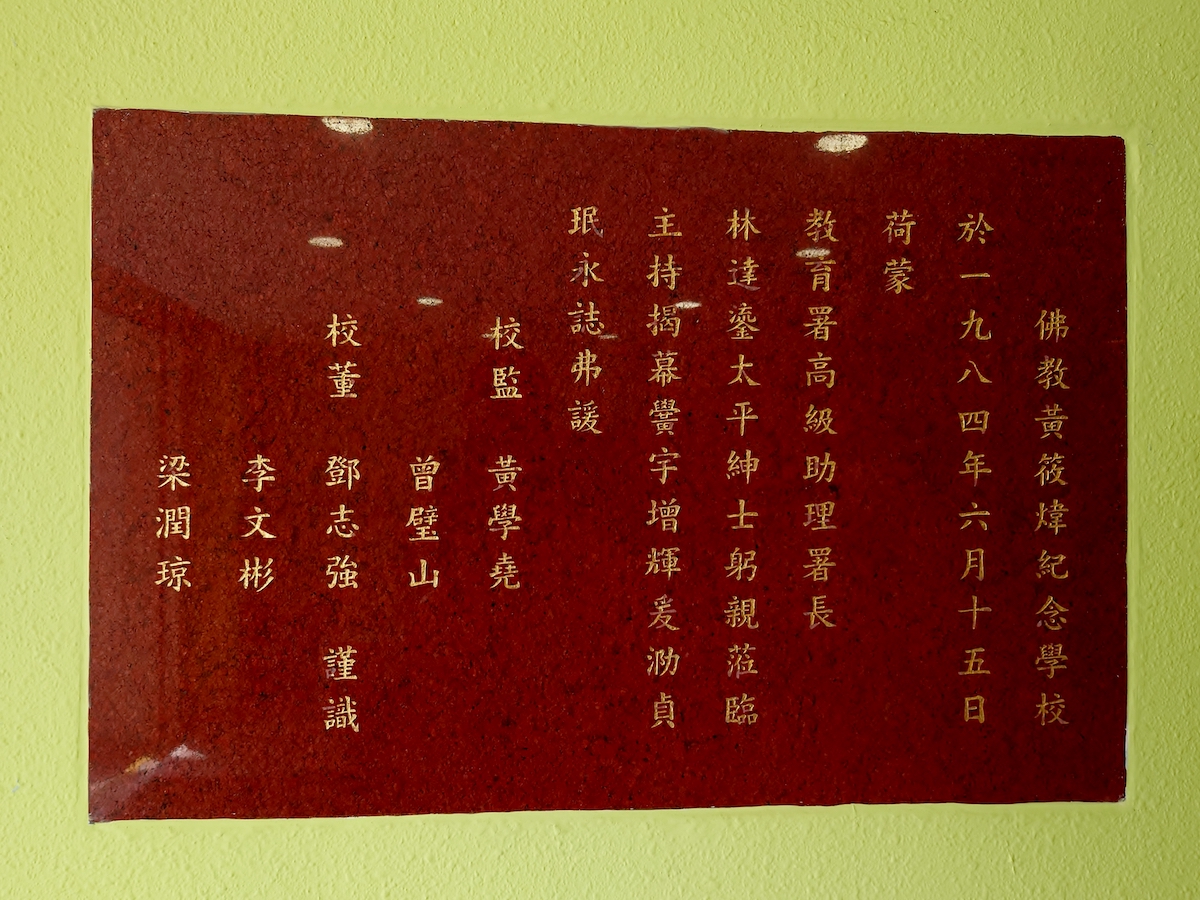 佛教黃筱煒紀念學校
於一九八四年六月十五日
荷蒙
教育署高級助理署長
林達鎏太平紳士躬親蒞臨
主持揭幕黌宇增輝爰泐貞
珉永誌弗諼
校監 黃學堯
曾璧山
校董 鄧志強 謹識
李文彬
梁潤琼